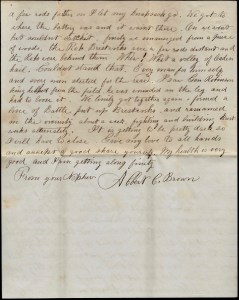 a few rods farther, as I let my knapsack go. We got to
where the battery was and it wasnt there. On we went
but couldnt Ketchit. finely we emerged from a piece
of woods, the Reb breastworks were a few rods distant and
the Rebs were behind them. Whew! What a volley of Cohorn
hail. We couldent stand that. Every man for himself
and every man started for the rear. I saw Gen. Johnson
being helped from the field, he was wounded in the leg and
had to leave it. We finely got together again, formed a
line of battle, put up breastworks and remained
in the vicinity about a week, fighting and building breast
works alternately. It is getting to be pretty dark so
I will have to close. Give my love to all hands
and accept a good share yourself. My health is very
good and I am getting along finely
From your Nephew
Albert C. Brown